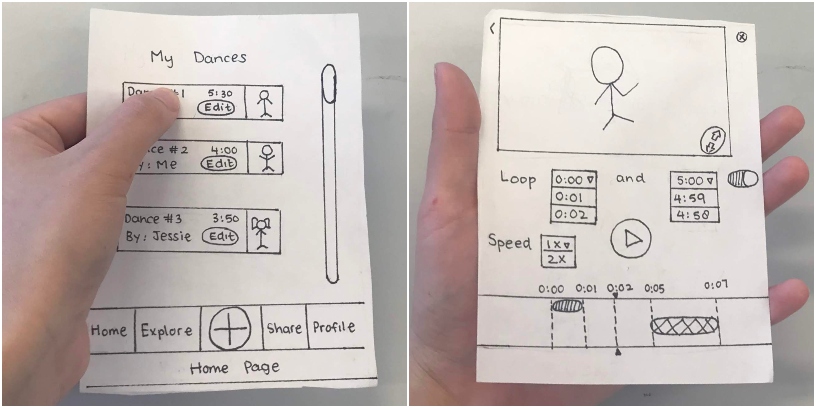 My Dances
5:30
Edit
#2 4:00
: Me Edit
Dance #3 3:50
By: Jessie Edit
Home Explore Share Profile
Home Page
Loop 0:00 and 5:00
0:01 4:59
0:02 4:58
Speed 1x
2x
0:00 0:01 0:02 0:05 0:07